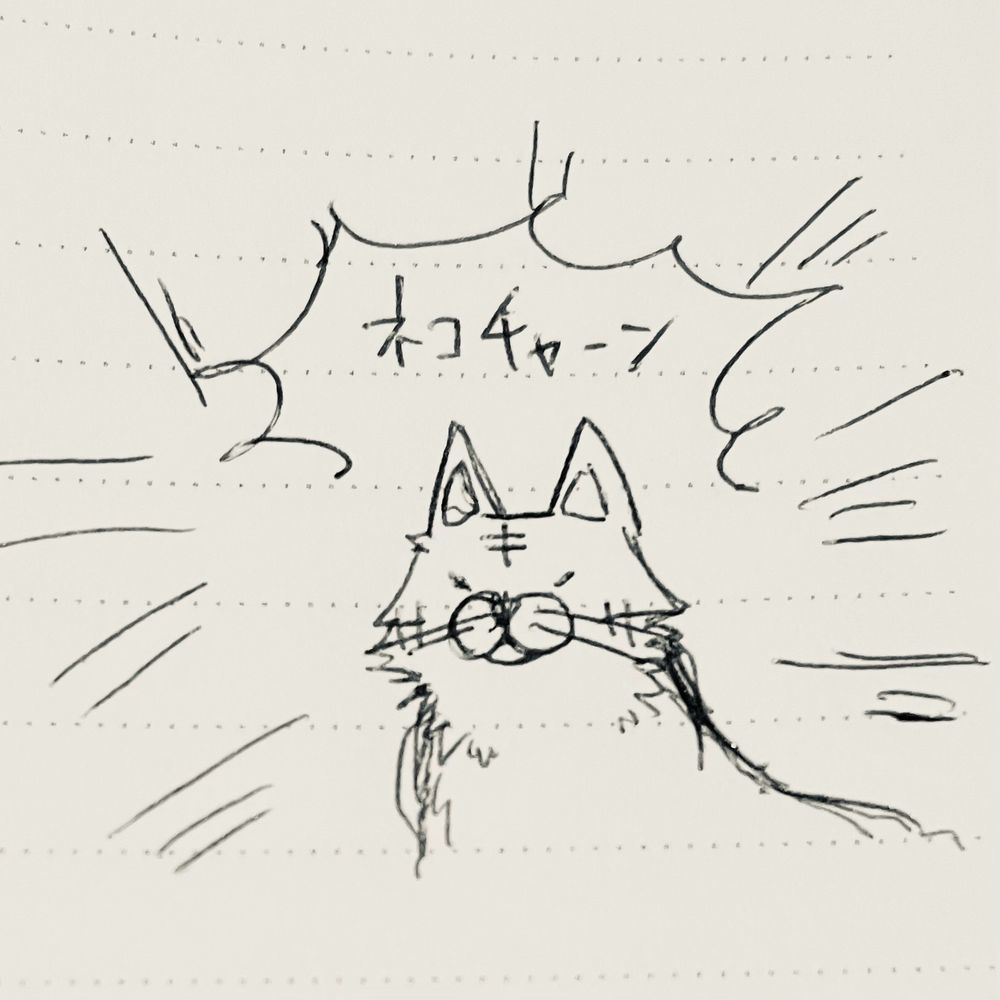 ネコチャーン